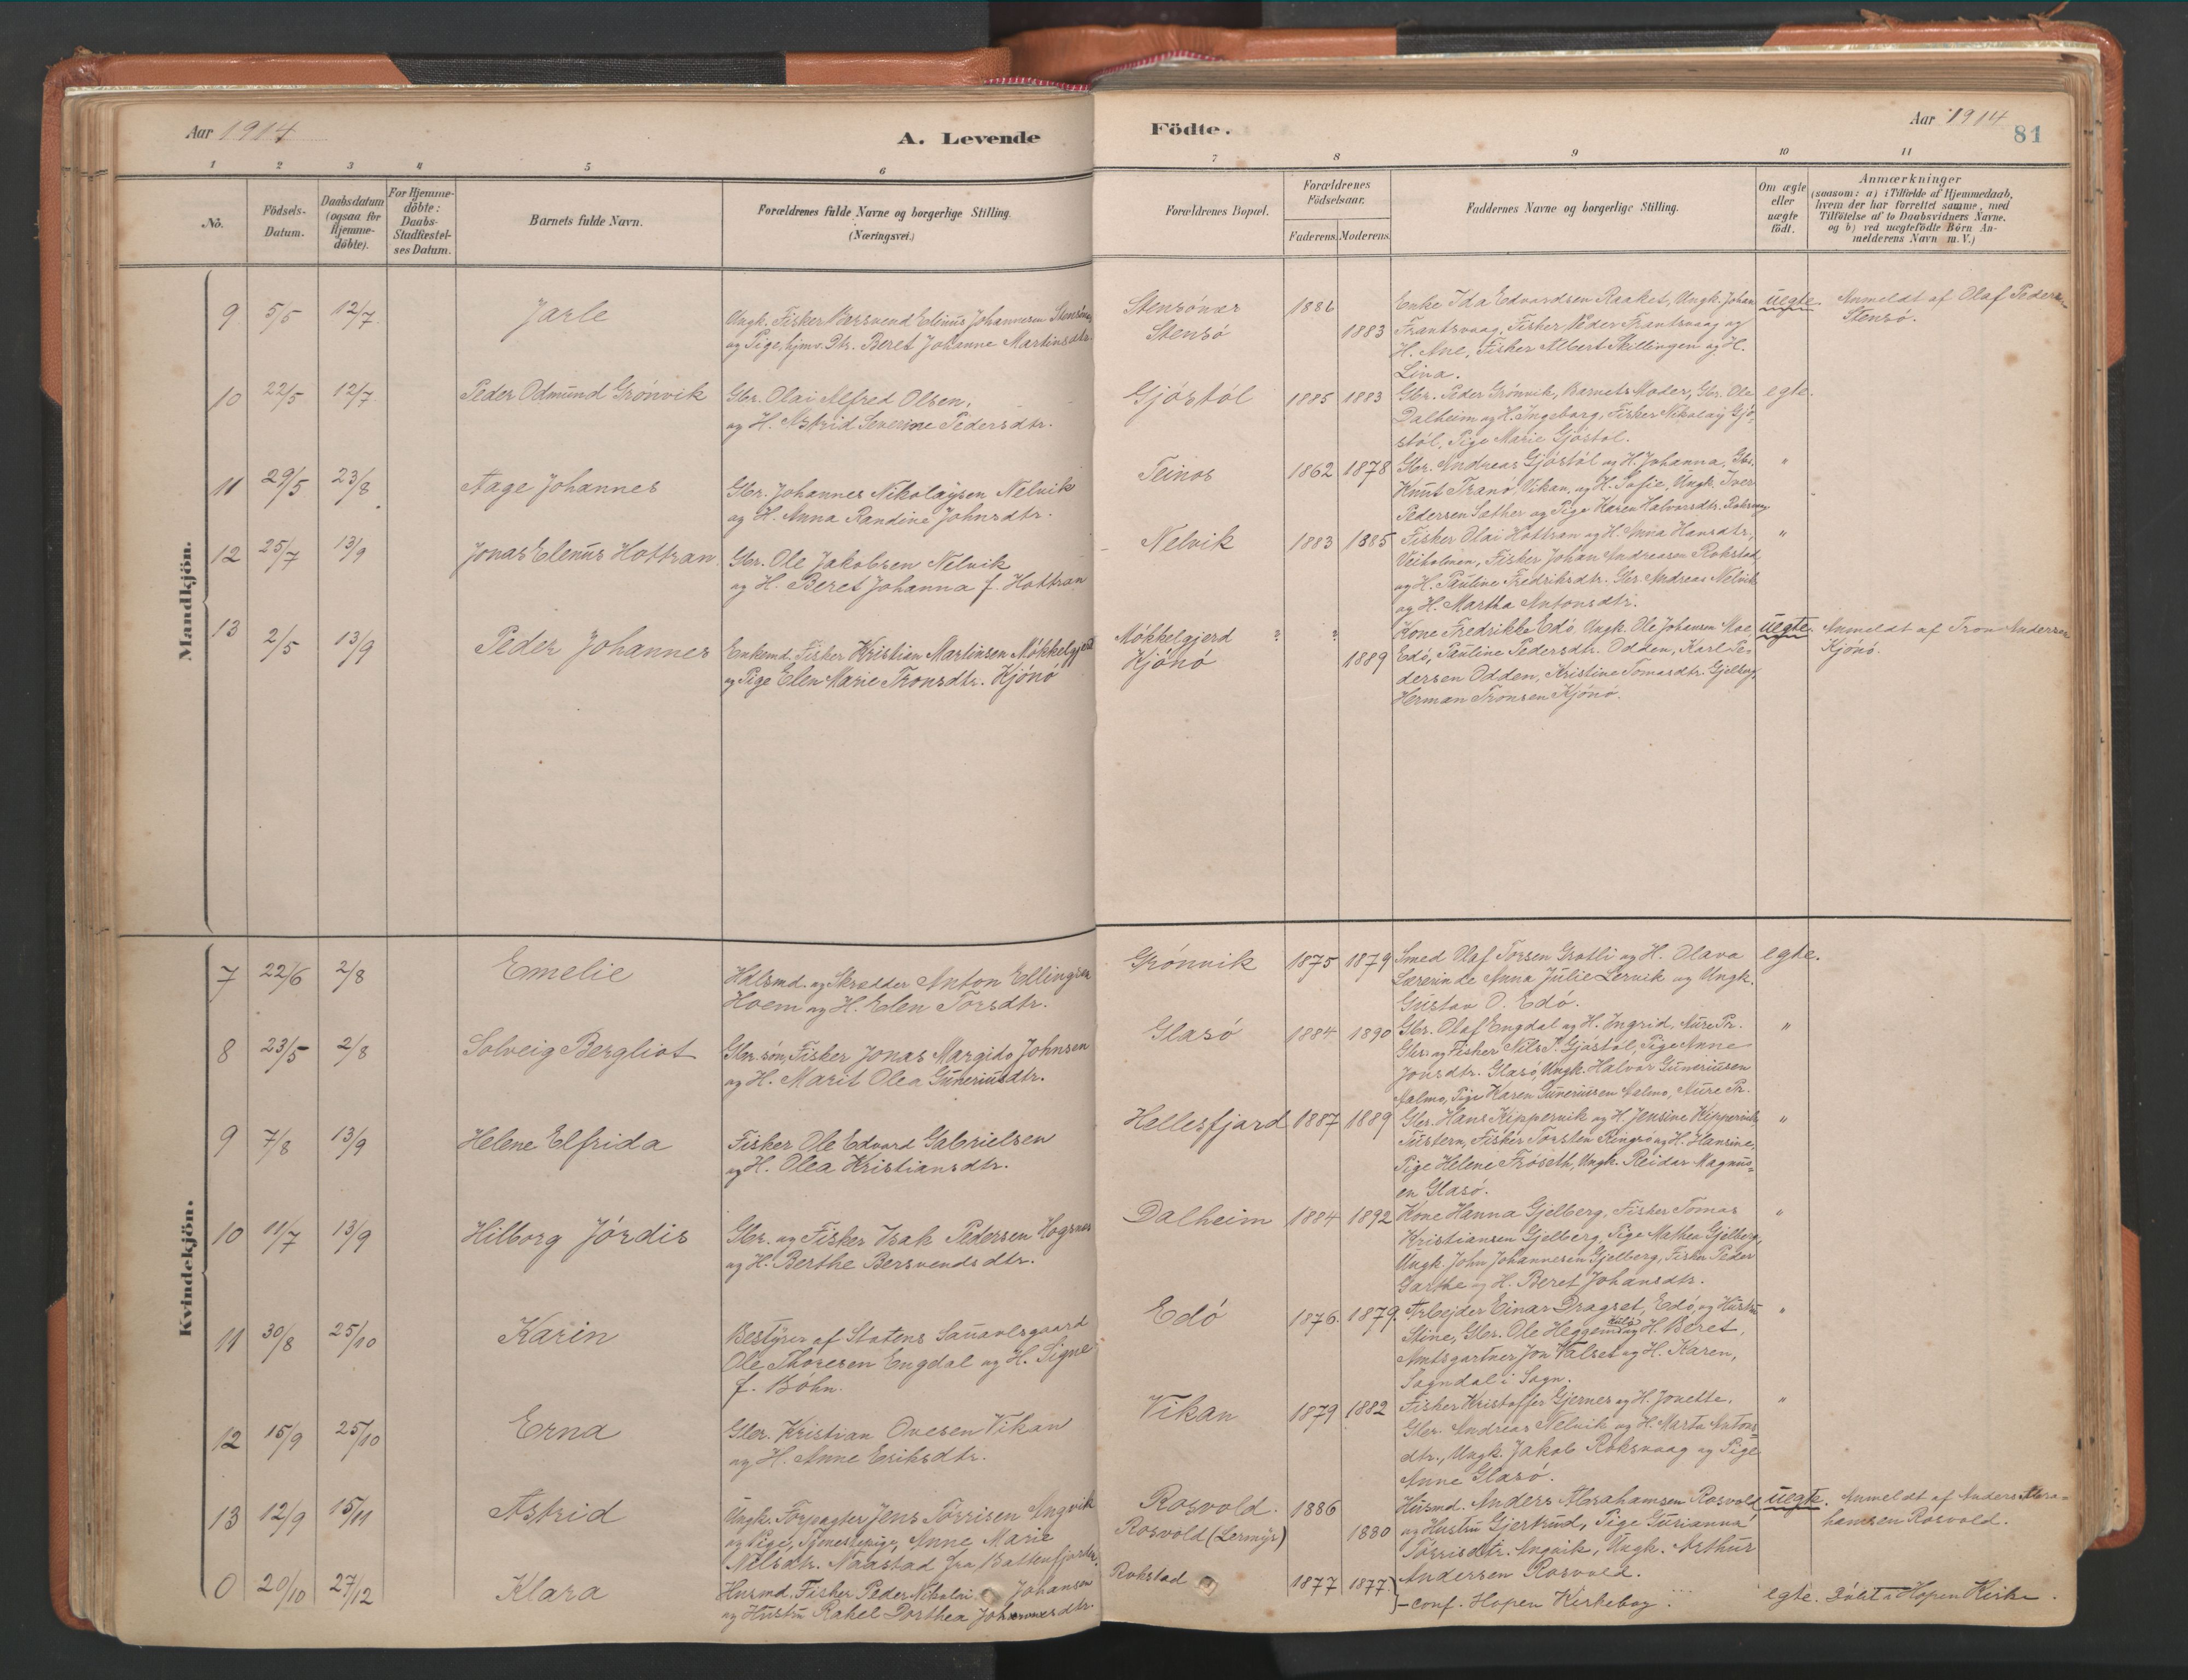 Aar 1914
A. Levende
Födte.
Aar 1914
81
1 2 3 4 5 6 7 8 9 10 11
No.
Födsels-
Datum.
Daabsdatum
(ogsaa for
Hjemme-
döbte).
For Hjemme-
döbte:
Daabs-
Stadfæstel-
ses Datum.
Barnets fulde Navn.
Forældrenes fulde Navne og borgerlige Stilling.
(Næringsvei.)
Forældrenes Bopæl.
Forældrenes
Födselsaar.
Faderens. Moderens.
Faddernes Navne og borgerlige Stilling.
Om ægte
eller
uægte
födt.
Anmærkninger
(saasom: a) i Tilfælde af Hjemmedaab,
hvem der har forrettet samme, med
Tilföielse af to Daabsvidners Navne.
og b) ved uægtefödte Börn An-
melderens Navn m. V.)
Mandkjön.
9 5/5 12/7 Jarle
Ungk. Fisker Bersvend Elinus Johannesen Stensönes
og Pige, hjmv. Dtr. Beret Johanne Martinsdtr.
Stensönes 1886
Stensö 1883
Enke Ida Edvardsen Raaket, Ungk. Johan
Frantsvaag, Fisker Peder Frantsvaag og
H. Ane, Fisker Albert Skillingen og H.
Lina.
uegte. Anmeldt af Olaf Peders.
Stensö.
10 22/5 12/7 Peder Odmund Grönvik
Gbr. Olai Alfred Olsen,
og H. Astrid Severine Pedersdtr.
Gjöstöl 1885 1883
Gbr. Peder Grönvik, Barnets Moder, Gbr. Ole
Dalheim og H. Ingeborg, Fisker Nikolay Gjö-
stöl, Pige Marie Gjöstöl.
egte.
11 29/5 23/8 Aage Johannes
Gbr. Johannes Nikolaysen Nelvik
og H. Anna Randine Johnsdtr.
Teinos 1862 1878
Gbr. Andreas Gjöstöl og H. Johanna, Gbr.
Knut Tranö, Vikan, og H. Sofie, Ungk. Iver
Pedersen Sæther og Pige Karen Halvorsdtr.
"
12 25/7 13/9 Jonas Elenus Hottran.
Gbr. Ole Jakobsen Nelvik
og H. Beret Johanna f. Hottran
Nelvik 1883 1885
Fisker Olai Hottran og H. Anna Hansdtr.,
Veiholmen, Fisker Johan Andreasen Rokstad,
og H. Pauline Fredriksdtr. Gbr. Andreas Nelvik
og H. Martha Antonsdtr.
"
13 2/5 13/9 Peder Johannes
Enkemd. Fisker Kristian Martinsen Mökkelgjerd
og Pige Elen Marie Tronsdtr. Kjönö
Mökkelgjerd ? ?
Kjönö 1889
Kone Fredrikke Edö. Ungk. Ole Johansen Moe,
Edö, Pauline Pedersdtr. Odden, Karl Pe-
dersen Odden, Kristine Tomasdtr. Gjelberg,
Herman Tronsen Kjönö.
uegte. Anmeldt af Tron Andersen
Kjönö.
Kvindekjön.
7 22/6 2/8 Emelie
Hdlsmd. og Skrædder Anton Ellingsen
Hoem og H. Elen Torsdtr.
Grönvik 1875 1879
Smed Olaf Torsen Grotli og H. Olava
Lærerinde Anna Julie Lervik og Ungk.
Gustav O. Edö.
egte.
8 23/5 2/8 Solveig Bergliot
Gbr.sön, Fisker Jonas Margido Johnsen
og H. Marit Olea Guneriusdtr.
Glasö 1884 1890
Gbr. Olaf Engdal og H. Ingrid, Aure Pr.
Gbr. og Fisker Nils P. Gjöstöl, Pige Anne
Jonsdtr. Glasö, Ungk. Halvor Guneriusen
Aalmo, Pige Karen Guneriusen Aalmo, Aure Pr.
"
9 7/8 13/9 Helene Elfrida
Fisker Ole Edvard Gabrielsen
og H. Olea Kristiansdtr.
Hellesfjord 1887 1889
Gbr. Hans Kippervik og H. Jensine Kippervik,
Tustern, Fisker Torsten Ringsö og H. Hansine,
Pige Helene Fröseth, Ungk. Reidar Magnus-
en Glasö.
"
10 11/7 13/9 Hilborg Jördis
Gbr. og Fisker Isak Pedersen Hogsnes
og H. Berthe Bersvendsdtr.
Dalheim 1884 1892
Kone Hanna Gjelberg, Fisker Tomas
Kristiansen Gjelberg, Pige Mathea Gjelberg,
Ungk. John Johannesen Gjelberg, Fisker Peder
Garthe og H. Beret Johansdtr.
"
11 30/8 25/10 Karin
Bestyrer af Statens Saueavlsgaard
Ole Thoresen Engdal og H. Signe
f. Böhn.
Edö 1876. 1879.
Arbejder Einar Dragset, Edö, og Hustru
Stine, Gbr. Ole Heggem og H. Beret,
Amtsgartner Jon Valset og H. Karen,
Sogndal i Sogn.
"
12 15/9 25/10 Erna
Gbr. Kristian Ovesen Vikan
og H. Anne Eriksdtr.
Vikan 1879 1882
Fisker Kristoffer Gjernes og H. Jonetta,
Gbr. Andreas Nelvik og H. Marta Antons-
dtr., Ungk. Jakob Roksvaag og Pige
Anne Glasö.
"
13 12/9 15/11 Astrid
Ungk. Forpagter Jens Torrisen Angvik
og Pige, Tjenestepige, Anne Marie
Nilsdtr. Naastad fra Battenfjorden.
Rosvold. 1886
Rosvold (Lermyr) 1880
Husmd. Anders Abrahamsen Rosvold
og Hustru Gjertrud, Pige Gurianna
Torrisdtr. Angvik, Ungk. Arthur
Andersen Rosvold.
uegte. Anmeldt af Anders Abra-
hamsen Rosvold.
0 20/10 27/12 Klara
Husmd. Fisker Peder Nikolai Johansen
og Hustru Rakel Dorthea Johannesdtr.
Rokstad 1877 1877.
- conf. Hopen Kirkebog.
egte. Döbt i Hopen Kirke.